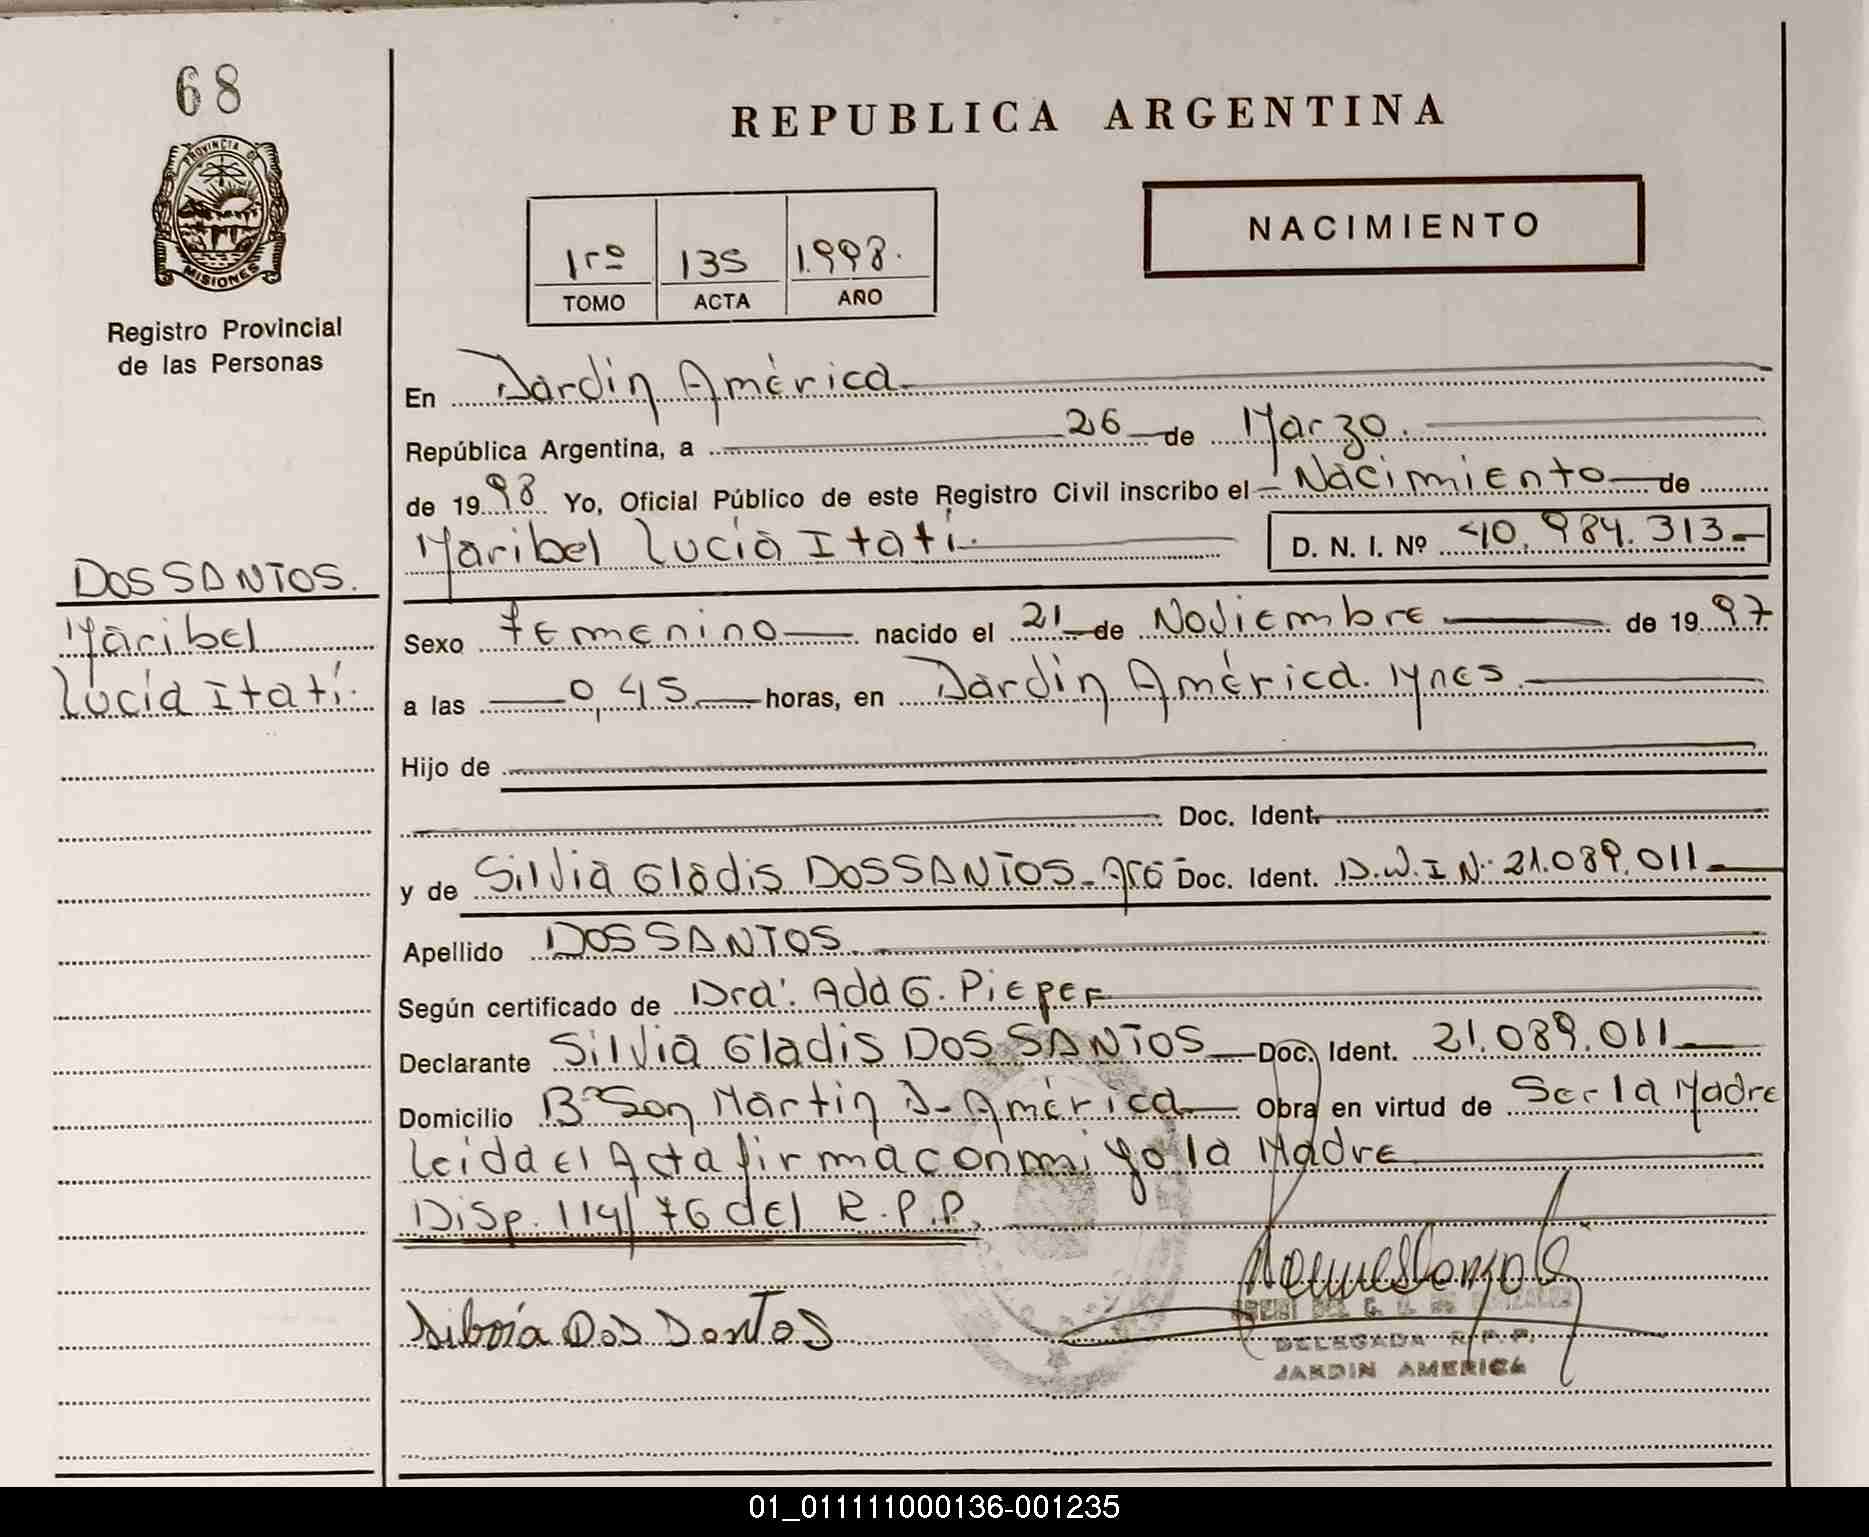 68
PROVINCIA DE
MISIONES
Registro Provincial
de las Personas
REPUBLICA ARGENTINA
NACIMIENTO
1rº 135 1.998.
TOMO ACTA AÑO
En Jardín América
República Argentina, a 26 de Marzo.
de 1998 Yo, Oficial Público de este Registro Civil inscribo el Nacimiento de
Maribel Lucía Itatí. D. N. I. Nº 40.984.313
DOS SANTOS.
Maribel
Lucía Itatí.
Sexo Femenino nacido el 21 de Noviembre de 1997
a las 0,45 horas, en Jardín América. Mnes
Hijo de
Doc. Ident.
y de Silvia Gladis DOS SANTOS Doc. Ident. D.N.I Nº 21.089.011
Apellido DOS SANTOS
Según certificado de Dra. Ada G. Pieper
Declarante Silvia Gladis DOS SANTOS Doc. Ident. 21.089.011
Domicilio Bº San Martín J. América Obra en virtud de Ser la Madre
Leida el Acta firma conmigo la Madre
Disp. 114/76 del R.P.P.
Dos Santos
DELEGADA R.P.P.
JARDIN AMERICA
01_011111000136-001235